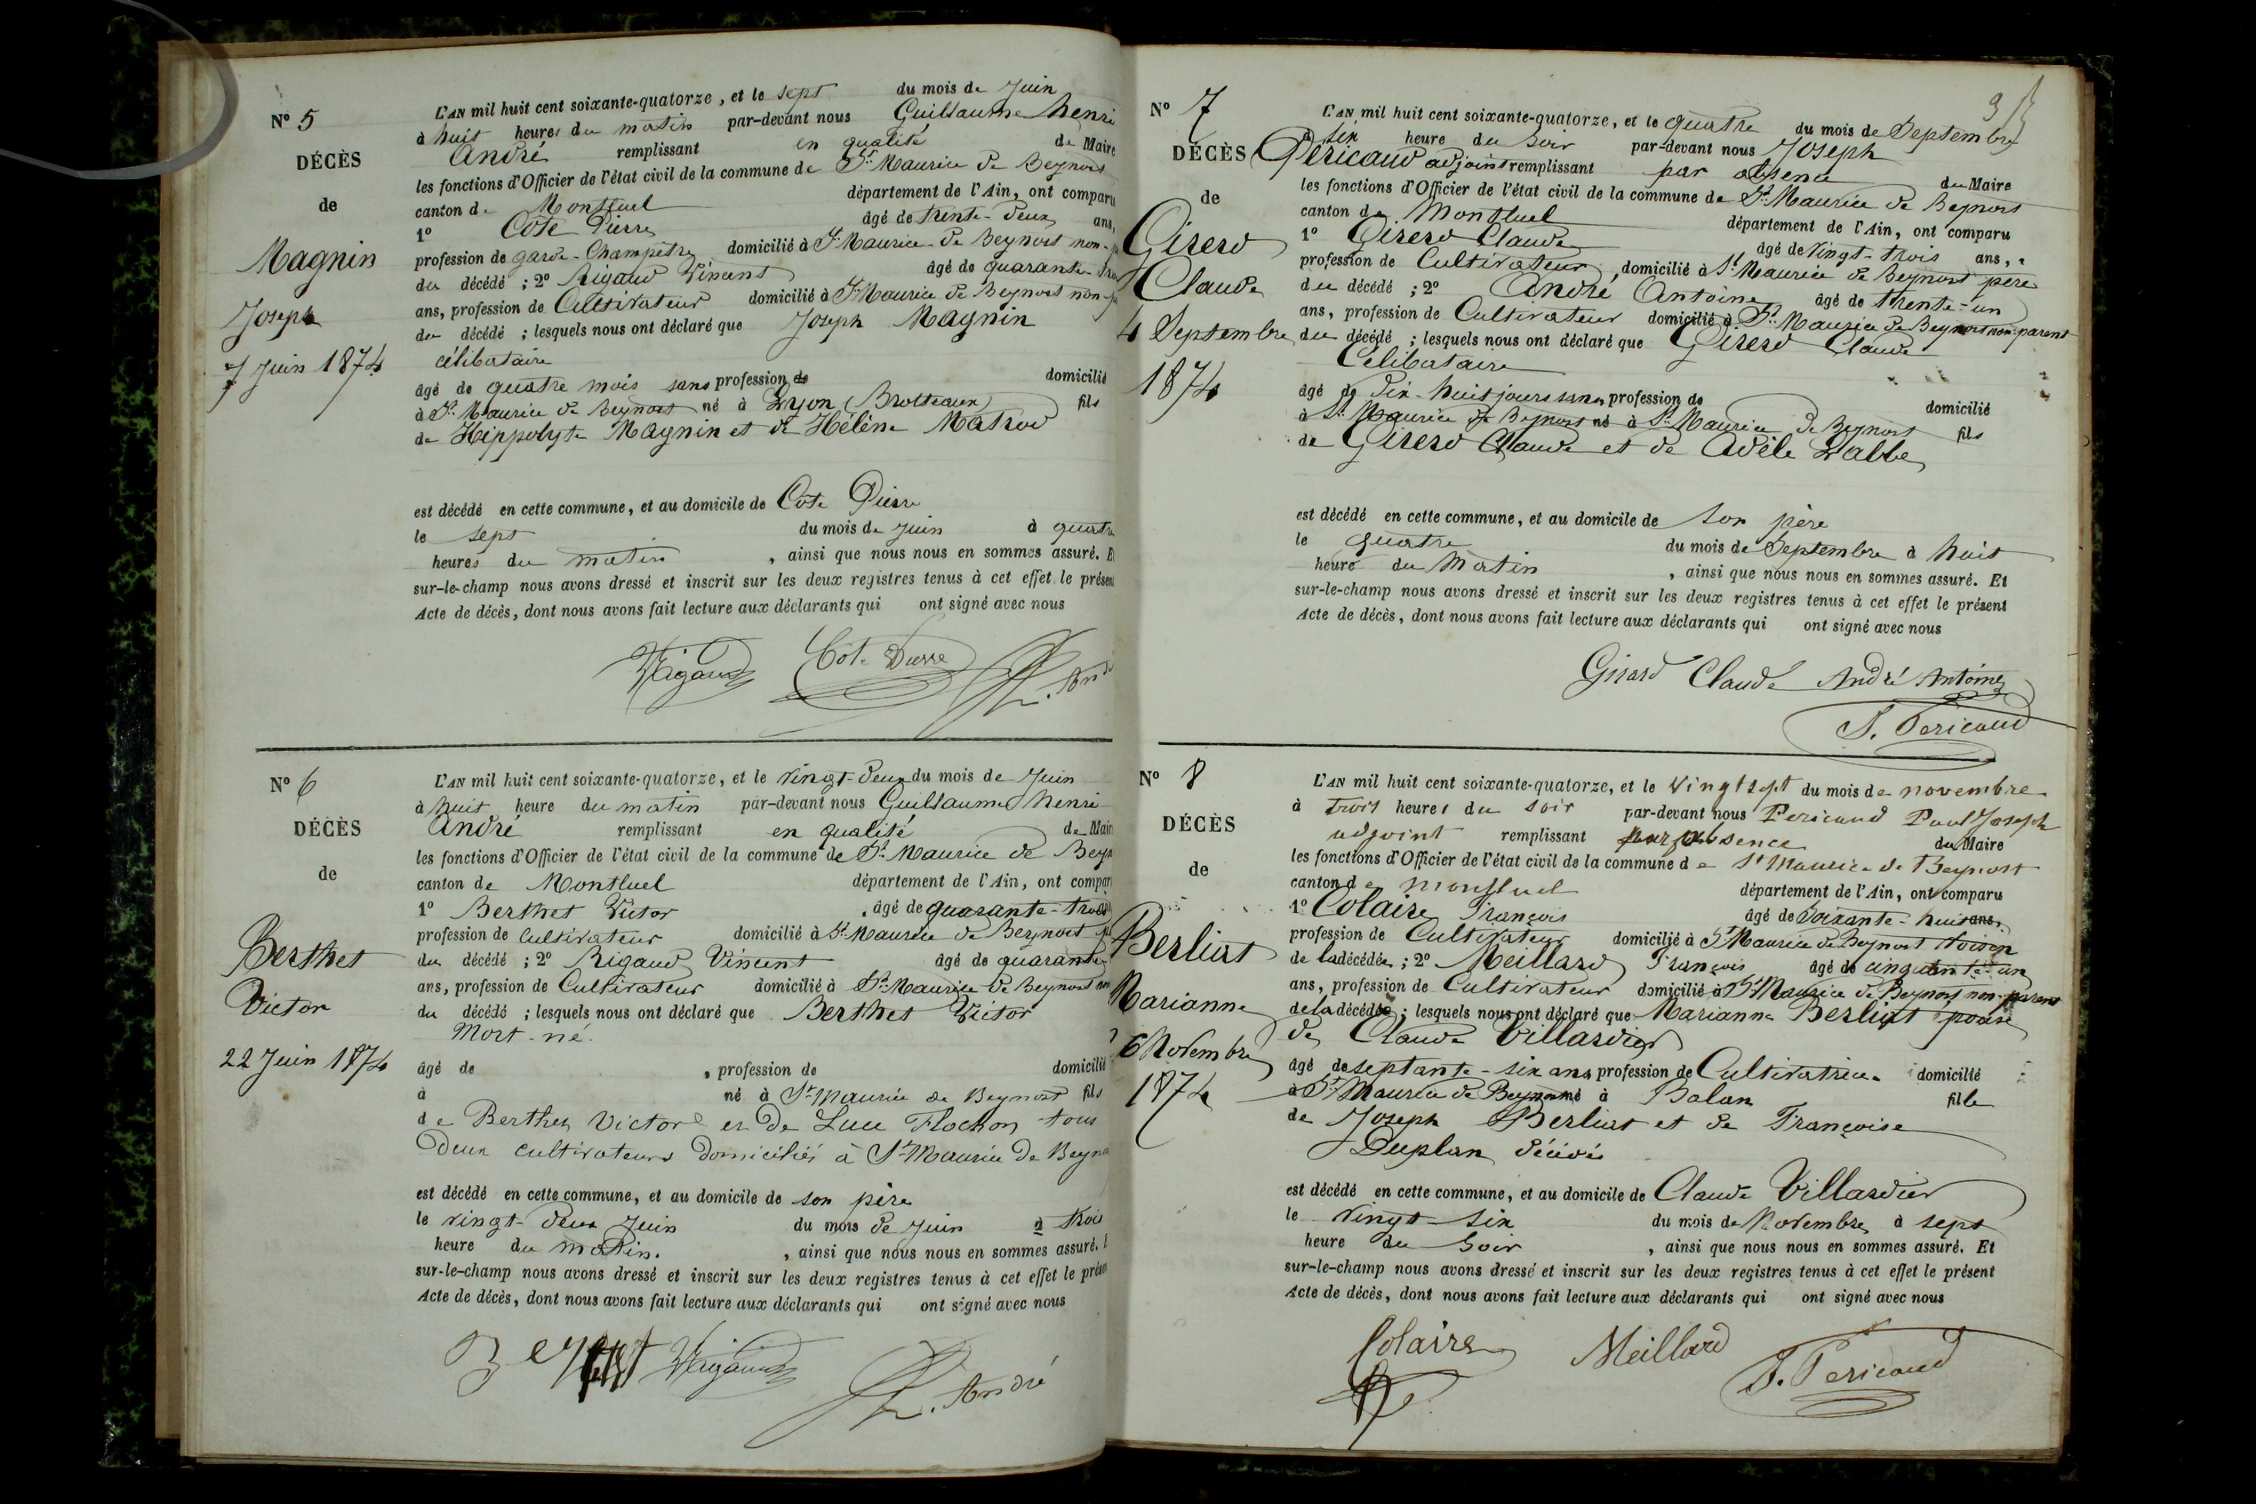 N° 5
DÉCÈS
de
Magnin
Joseph
7 Juin 1874
L'AN mil huit cent soixante-quatorze, et le sept du mois de Juin
à huit heures du matin par-devant nous Guillaume Henri
André remplissant en qualité de Maire
les fonctions d'Officier de l'état civil de la commune de St Maurice de Beynost
canton de Montluel département de l'Ain, ont comparu
1° Cote Pierre âgé de trente-deux ans,
profession de garde-Champêtre domicilié à St Maurice de Beynost non-
du décédé ; 2° Rigaud Vincent âgé de quarante-
ans, profession de Cultivateur domicilié à St Maurice de Beynost non-
du décédé ; lesquels nous ont déclaré que Joseph Magnin
célibataire
âgé de quatre mois sans profession de domicilié
à St Maurice de Beynost né à Lyon (Brotteaux) fils
de Hippolyte Magnin et de Hélène Matrod
est décédé en cette commune, et au domicile de Cote Pierre
le sept du mois de Juin à quatre
heures du matin, ainsi que nous nous en sommes assuré. Et
sur-le-champ nous avons dressé et inscrit sur les deux registres tenus à cet effet le présent
Acte de décès, dont nous avons fait lecture aux déclarants qui ont signé avec nous
VRigaud Cote Pierre h. André
N° 6
DÉCÈS
de
Berthet
Victor
22 Juin 1874
L'AN mil huit cent soixante-quatorze, et le vingt-deux du mois de Juin
à huit heure du matin par-devant nous Guillaume Henri
André remplissant en qualité de Maire
les fonctions d'Officier de l'état civil de la commune de St Maurice de Beyn
canton de Montluel département de l'Ain, ont comparu
1° Berthet Victor, âgé de quarante-trois
profession de Cultivateur domicilié à St Maurice de Beynost
du décédé ; 2° Rigaud Vincent âgé de quarante-
ans, profession de Cultivateur domicilié à St Maurice de Beynost non
du décédé ; lesquels nous ont déclaré que Berthet Victor
Mort-né.
âgé de , profession de domicilié
à né à St Maurice de Beynost fils
de Berthet Victor et De Luce Flochon tous
Deux cultivateurs domiciliés à St Maurice De Beyno
est décédé en cette commune, et au domicile de son père
le vingt-deux Juin du mois de Juin à trois
heure du matin. , ainsi que nous nous en sommes assuré.
sur-le-champ nous avons dressé et inscrit sur les deux registres tenus à cet effet le présent
Acte de décès, dont nous avons fait lecture aux déclarants qui ont signé avec nous
VRigaud h. André
N° 7
DÉCÈS
de
Girerd
Claude
4 Septembre
1874
L'AN mil huit cent soixante-quatorze, et le quatre du mois de Septembre
à six heure du soir par-devant nous Joseph
Péricaud adjoint remplissant par absence du Maire
les fonctions d'Officier de l'état civil de la commune de St Maurice de Beynost
canton de Montluel département de l'Ain, ont comparu
1° Girerd Claude âgé de vingt-trois ans,
profession de Cultivateur, domicilié à St Maurice de Beynost père
du décédé ; 2° André Antoine âgé de trente-un
ans, profession de Cultivateur domicilié à St Maurice de Beynost non-parent
du décédé ; lesquels nous ont déclaré que Girerd Claude
Célibataire
âgé de dix-huit jours sans profession de domicilié
à St Maurice de Beynost né à St Maurice de Beynost fils
de Girerd Claude et de Adèle Labbe
est décédé en cette commune, et au domicile de son père
le quatre du mois de Septembre à huit
heure du Matin, ainsi que nous nous en sommes assuré. Et
sur-le-champ nous avons dressé et inscrit sur les deux registres tenus à cet effet le présent
Acte de décès, dont nous avons fait lecture aux déclarants qui ont signé avec nous
Girard Claude André Antoine
J. Pericaud
N° 8
DÉCÈS
de
Berliat
Marianne
6 Novembre
1874
L'AN mil huit cent soixante-quatorze, et le vingt sept du mois de novembre
à trois heures du soir par-devant nous Pericaud Paul Joseph
adjoint remplissant par absence du Maire
les fonctions d'Officier de l'état civil de la commune de St Maurice de Beynost
canton de montluel département de l'Ain, ont comparu
1° Colaire François âgé de Soixante-huit ans,
profession de Cultivateur domicilié à St Maurice de Beynost Voisin
de la décédée ; 2° Meillard François âgé de cinquante-un
ans, profession de Cultivateur domicilié à St Maurice de Beynost non-parent
de la décédée ; lesquels nous ont déclaré que Marianne Berliat épouse
de Claude Villardier
âgé de septante-six ans, profession de Cultivatrice domicilié
à St Maurice de Beynost né à Balan fille
de Joseph Berliat et de Françoise
Duplan décédés
est décédé en cette commune, et au domicile de Claude Villardier
le vingt-six du mois de Novembre à sept
heure du Soir, ainsi que nous nous en sommes assuré. Et
sur-le-champ nous avons dressé et inscrit sur les deux registres tenus à cet effet le présent
Acte de décès, dont nous avons fait lecture aux déclarants qui ont signé avec nous
Colaire Meillard J. Pericaud